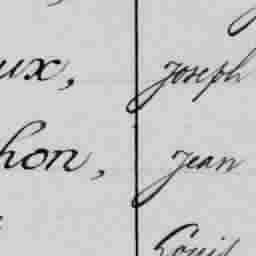 ux, Joseph
hon, Jean
Louis